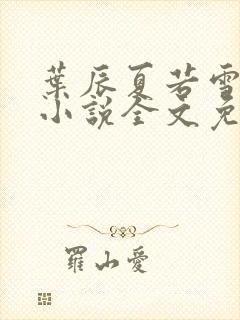 葉辰夏若雪
小說全文免
羅山愛